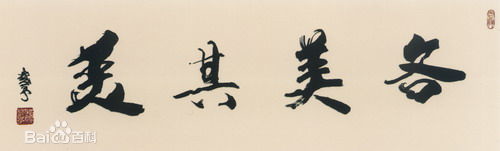 各美其美
Bai百科